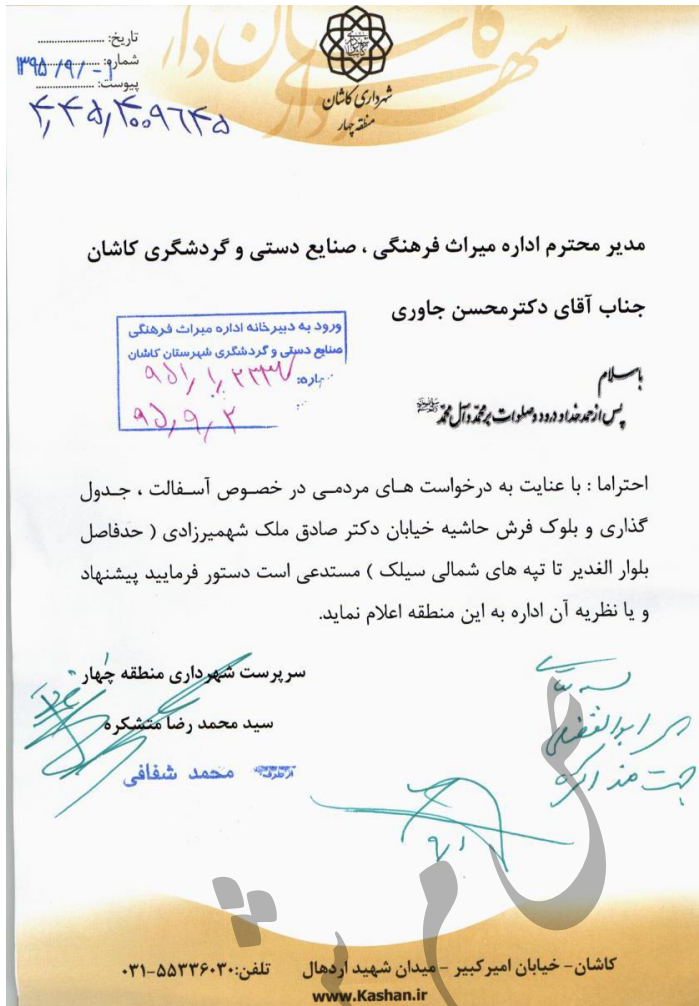 شهرداری کاشان
منطقه چهار
تاریخ: ۱۳۹۵/۹/۱
شماره:
پیوست:
مدیر محترم اداره میراث فرهنگی ، صنایع دستی و گردشگری کاشان
جناب آقای دکترمحسن جاوری
ورود به دبیرخانه اداره میراث فرهنگی
صنایع دستی و گردشگری شهرستان کاشان
۹۵/۹/۲
باسلام
پس از حمد خدا و درود و صلوات بر محمّد و آل محمّد
احتراما : با عنایت به درخواست های مردمی در خصوص آسفالت ، جدول
گذاری و بلوک فرش حاشیه خیابان دکتر صادق ملک شهمیرزادی ( حدفاصل
بلوار الغدیر تا تپه های شمالی سیلک ) مستدعی است دستور فرمایید پیشنهاد
و یا نظریه آن اداره به این منطقه اعلام نماید.
سرپرست شهرداری منطقه چهار
سید محمد رضا متشکره
از طرف محمد شفافی
ابوالفضلی
جهت مذاکره
کاشان- خیابان امیرکبیر - میدان شهید اردهال تلفن:۵۵۳۳۶۰۳۰-۰۳۱
www.Kashan.ir